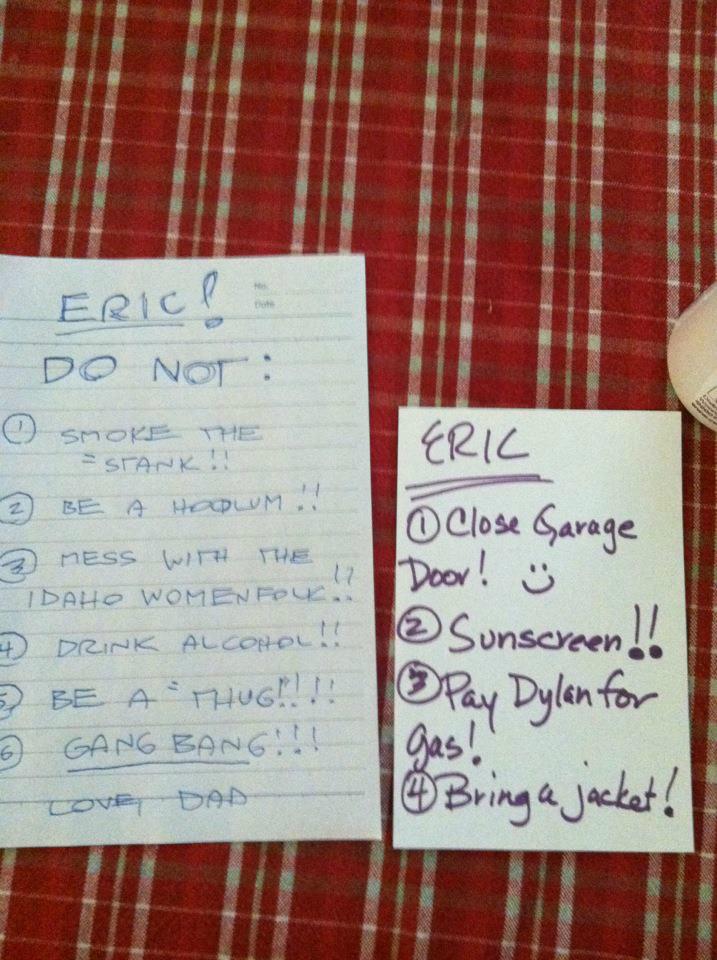 ERIC!
No.
Date
DO NOT:
① SMOKE THE
"STANK!!
② BE A HOODLUM!!
③ MESS WITH THE
IDAHO WOMENFOLK!!
④ DRINK ALCOHOL!!
⑤ BE A "THUG!!!!
⑥ GANG BANG!!!
LOVE, DAD
ERIC
① Close Garage
Door! :)
② Sunscreen!!
③ Pay Dylan for
gas!
④ Bring a jacket!